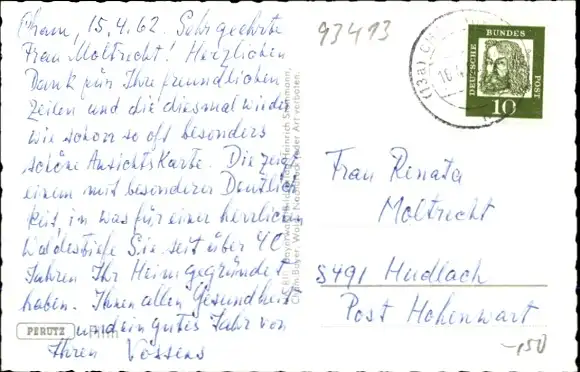 Cham, 15.4.62. Sehr geehrte
Frau Moltrecht! Herzlichen
Dank für Ihre freundlichen
Zeilen und die diesmal wieder
wie schon so oft besonders
schöne Ansichtskarte. Die zeigt
einem mit besonderer Deutlich
keit, in was für einer herrlichen
Waldestiefe Sie seit über 40
Jahren Ihr Heim gegründet
haben. Ihnen allen Gesundheit
und ein gutes Jahr von
Ihren Vossens
PERUTZ
93413
(13a)
DEUTSCHE BUNDES POST
10
Frau Renata
Moltrecht
8491 Hudlach
Post Hohenwart
-150